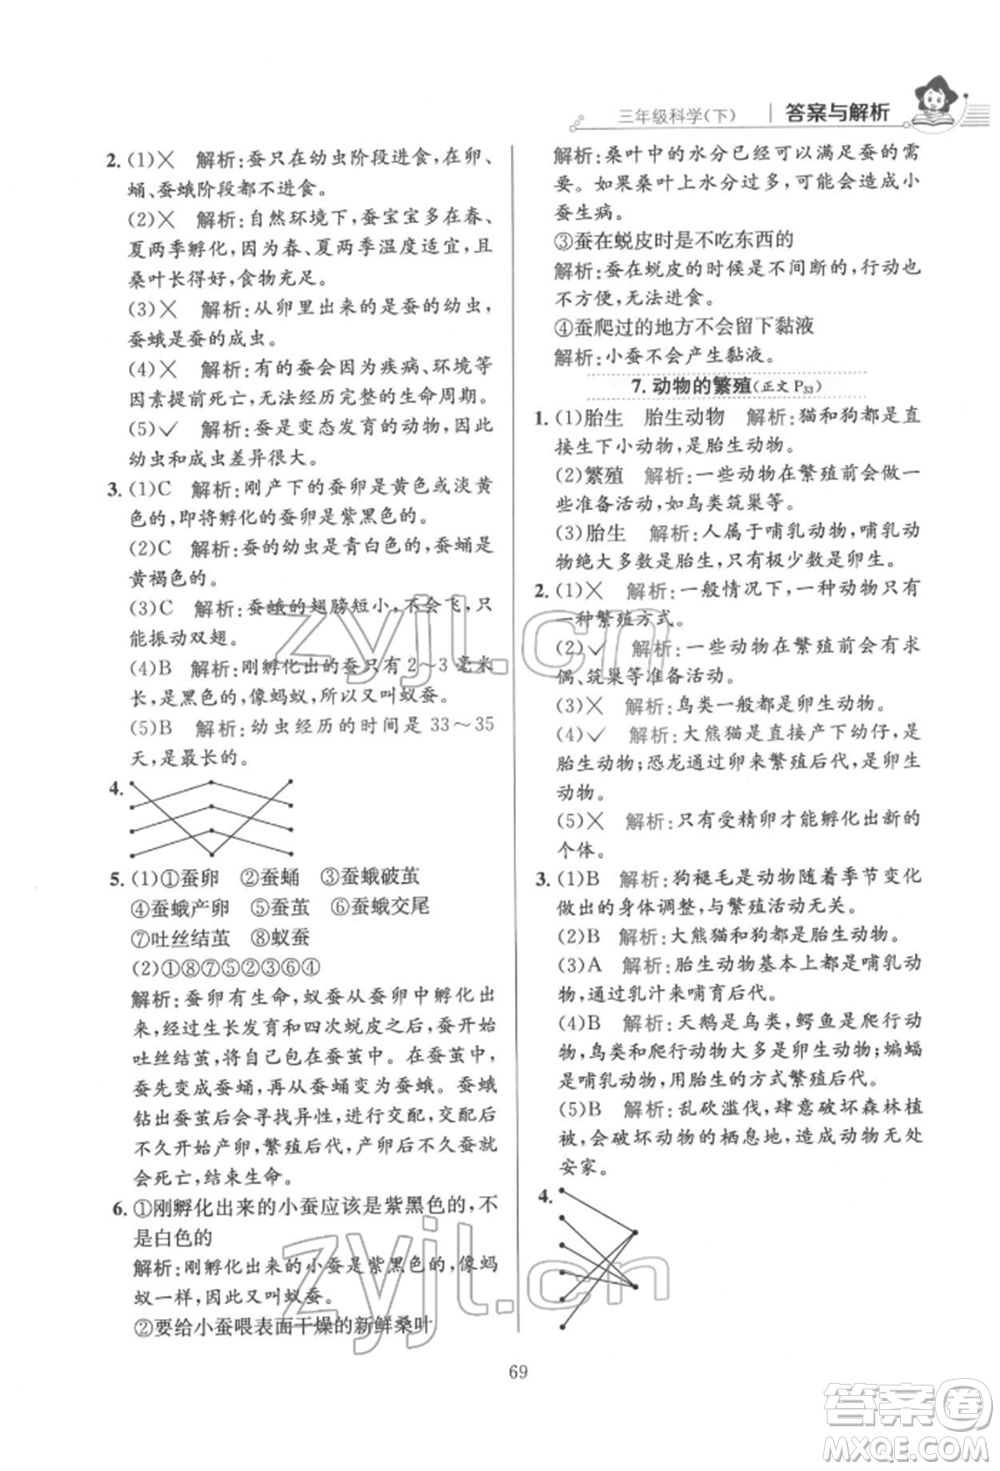 三年级科学(下) 答案与解析
2. (1)✕ 解析:蚕只在幼虫阶段进食,在卵、
蛹、蚕蛾阶段都不进食。
(2)✕ 解析:自然环境下,蚕宝宝多在春、
夏两季孵化,因为春、夏两季温度适宜,且
桑叶长得好,食物充足。
(3)✕ 解析:从卵里出来的是蚕的幼虫,
蚕蛾是蚕的成虫。
(4)✕ 解析:有的蚕会因为疾病、环境等
因素提前死亡,无法经历完整的生命周期。
(5)✓ 解析:蚕是变态发育的动物,因此
幼虫和成虫差异很大。
3. (1)C 解析:刚产下的蚕卵是黄色或淡黄
色的,即将孵化的蚕卵是紫黑色的。
(2)C 解析:蚕的幼虫是青白色的,蚕蛹是
黄褐色的。
(3)C 解析:蚕蛾的翅膀短小,不会飞,只
能振动双翅。
(4)B 解析:刚孵化出的蚕只有2~3毫米
长,是黑色的,像蚂蚁,所以又叫蚁蚕。
(5)B 解析:幼虫经历的时间是33~35
天,是最长的。
4.
5. (1)①蚕卵 ②蚕蛹 ③蚕蛾破茧
④蚕蛾产卵 ⑤蚕茧 ⑥蚕蛾交尾
⑦吐丝结茧 ⑧蚁蚕
(2)①⑧⑦⑤②③⑥④
解析:蚕卵有生命,蚁蚕从蚕卵中孵化出
来,经过生长发育和四次蜕皮之后,开始
吐丝结茧,将自己包裹在蚕茧中。在蚕茧中,
蚕先变成蚕蛹,再从蚕蛹变为蚕蛾。蚕蛾
钻出蚕茧后会寻找异性,进行交配,交配后
不久开始产卵,繁殖后代,产卵后不久蚕蛾
会死亡,结束生命。
6. ①刚孵化出来的小蚕应该是紫黑色的,不
是白色的
解析:刚孵化出来的小蚕是紫黑色的,像蚂
蚁一样,因此又叫蚁蚕。
②要给小蚕喂表面干燥的新鲜桑叶
解析:桑叶中的水分已经可以满足蚕的需
要。如果桑叶上水分过多,可能会造成小
蚕生病。
③蚕在蜕皮时是不吃东西的
解析:蚕在蜕皮的时候是不间断的,行动也
不方便,无法进食。
④蚕爬过的地方不会留下黏液
解析:小蚕不会产生黏液。
7. 动物的繁殖(正文 P33)
1. (1)胎生 胎生动物 解析:猫和狗都是直
接生下小动物,是胎生动物。
(2)繁殖 解析:一些动物在繁殖前会做一
些准备活动,如鸟类筑巢等。
(3)胎生 解析:人属于哺乳动物,哺乳动
物绝大多数是胎生,只有极少数是卵生。
2. (1)✕ 解析:一般情况下,一种动物只有
一种繁殖方式。
(2)✓ 解析:一些动物在繁殖前会有求
偶、筑巢等准备活动。
(3)✕ 解析:鸟类一般都是卵生动物。
(4)✓ 解析:大熊猫是直接产下幼仔,是
胎生动物;恐龙通过卵来繁殖后代,是卵生
动物。
(5)✕ 解析:只有受精卵才能孵化出新的
个体。
3. (1)B 解析:狗褪毛是动物随着季节变化
做出的身体调整,与繁殖活动无关。
(2)B 解析:大熊猫和狗都是胎生动物。
(3)A 解析:胎生动物基本上都是哺乳动
物,通过乳汁来哺育后代。
(4)B 解析:天鹅是鸟类,鳄鱼是爬行动
物,鸟类和爬行动物大多是卵生动物;蝙蝠
是哺乳动物,用胎生的方式繁殖后代。
(5)B 解析:乱砍滥伐,肆意破坏森林植
被,会破坏动物的栖息地,造成动物无处
安家。
4.
69
zyjl.cn
zyjl.cn
答案圈
MXQE.COM